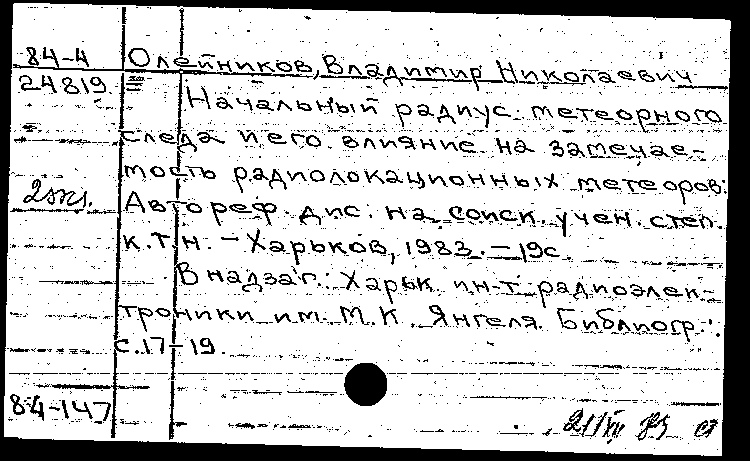 84-4 Олейников, Владимир Николаевич
24819 Начальный радиус метеорного
следа и его влияние на замечае-
мость радиолокационных метеоров:
2 экз. Автореф. дис. на соиск. учен. степ.
к.т.н. - Харьков, 1983. - 19с.
В надзаг.: Харьк. ин-т радиоэлек-
троники им. М.К. Янгеля. Библиогр.:
с. 17-19.
84-147
21/XII 83